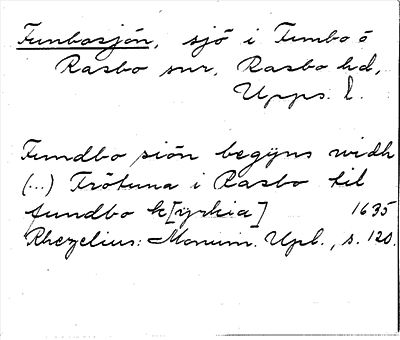 Funbosjön, sjö i Funbo ö
Rasbo snr, Rasbo hd,
Upps. l.
Fundbo siön begÿns widh
(...) Frötuna i Rasbo til
fundbo k[yrkia] 1635
Rhezelius: Monum. Upl., s. 120.